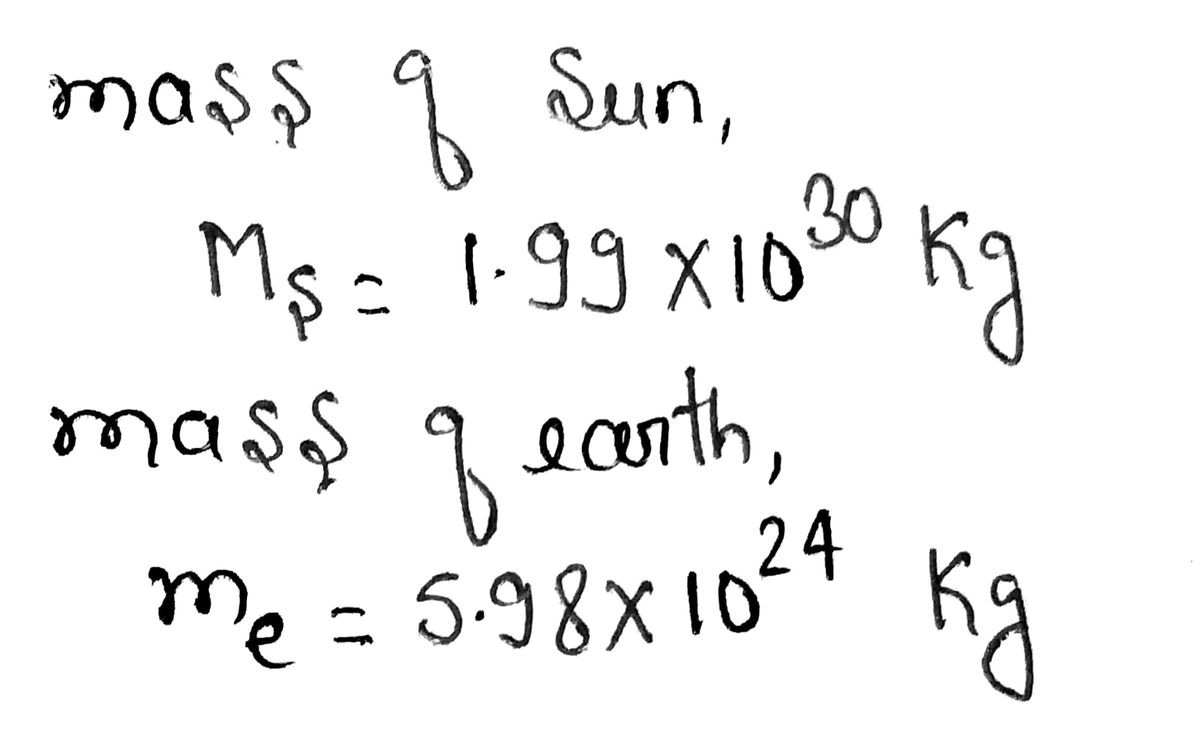 mass of Sun,
Ms = 1.99 x 10^30 Kg
mass of earth,
me = 5.98 x 10^24 Kg